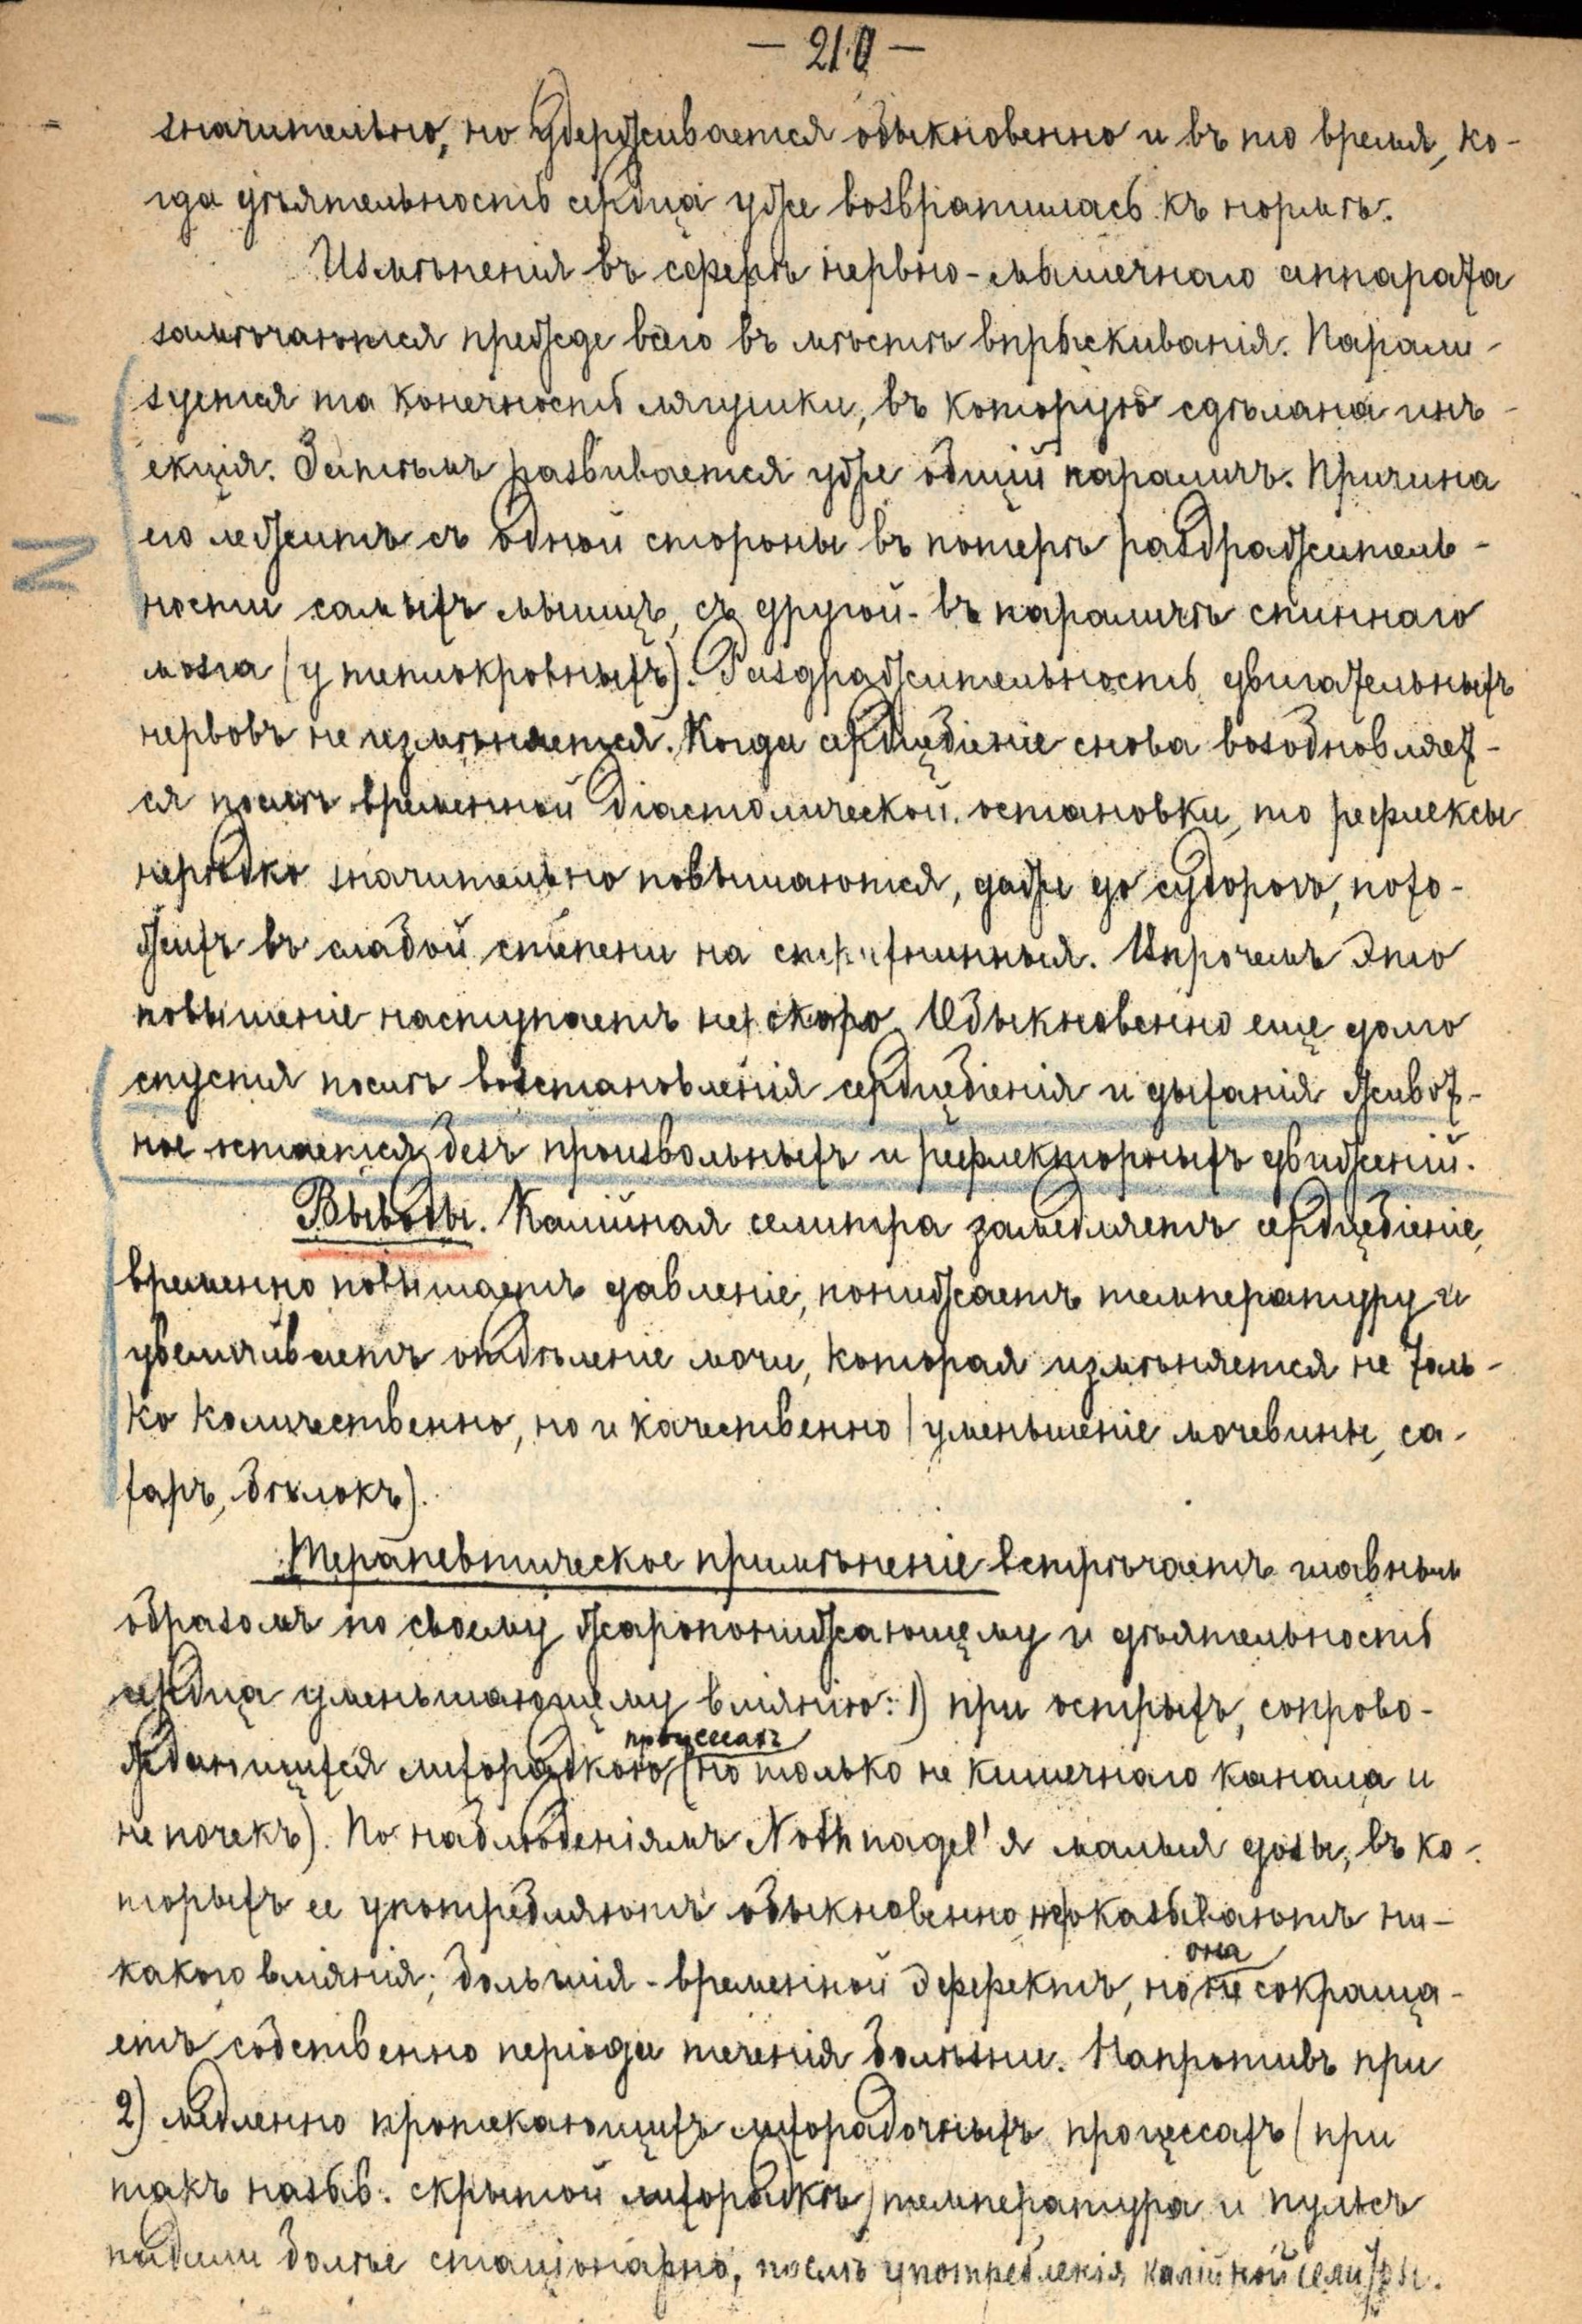 — 210 —
значительно, но удерживается обыкновенно и въ то время, ко-
гда дѣятельность сердца уже возвратилась къ нормѣ.
Измѣненія въ сферѣ нервно-мышечнаго аппарата
замѣчаются прежде всего въ мѣстѣ впрыскиванія. Парали-
зуется та конечность лягушки, въ которую сдѣлана инъ-
екція. Затѣмъ развивается уже общій параличъ. Причина
его лежитъ съ одной стороны въ потерѣ раздражитель-
ности самыхъ мышцъ, съ другой - въ параличѣ спиннаго
мозга (у теплокровныхъ). Раздражительность двигательныхъ
нервовъ не измѣняется. Когда сердцебіеніе снова возобновляет-
ся послѣ временной діастолической остановки, то рефлексы
нерѣдко значительно повышаются, даже до судорогъ, похо-
жихъ въ слабой степени на стрихнинныя. Впрочемъ это
повышеніе наступаетъ не скоро. Обыкновенно еще долго
спустя послѣ возстановленія сердцебіенія и дыханія живот-
ное остается безъ произвольныхъ и рефлекторныхъ движеній.
Выводы. Калійная селитра замедляетъ сердцебіеніе,
временно повышаетъ давленіе, понижаетъ температуру и
увеличиваетъ отдѣленіе мочи, которая измѣняется не толь-
ко количественно, но и качественно (уменьшеніе мочевины, са-
харъ, бѣлокъ).
Терапевтическое примѣненіе встрѣчаетъ главнымъ
образомъ по своему жаропонижающему и дѣятельность
сердца уменьшающему вліянію: 1) при острыхъ, сопрово-
процессахъ
ждающихся лихорадкою, (но только не кишечнаго канала и
не почекъ). По наблюденіямъ Nothnagel'я малыя дозы, въ ко-
торыхъ ее употребляютъ обыкновенно, не оказываютъ ни-
какого вліянія; большія - временной эффектъ, но не сокраща-
она
етъ собственно періода теченія болѣзни. Напротивъ при
2) медленно протекающихъ лихорадочныхъ процессахъ (при
такъ назыв. скрытой лихорадкѣ) температура и пульсъ
падали болѣе стаціонарно, послѣ употребленія калійной селитры.